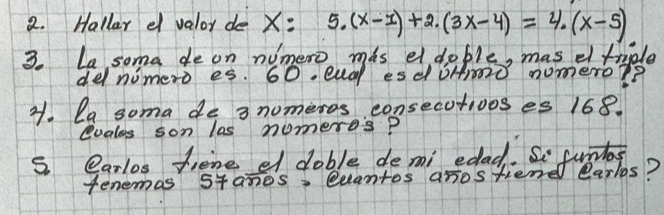 2. Hallar el valor de X: 5.(x-1)+2.(3x-4) = 4.(x-5)
3. La soma de on número más el doble, mas el triple
del número es. 60. Cual es el último numero??
4. La soma de 3 numeros consecutivos es 168.
Cuales son las numeros?
5 Carlos tiene el doble de mi edad. Si juntos
tenemas 57 años, Cuantos años tiene Carlos?